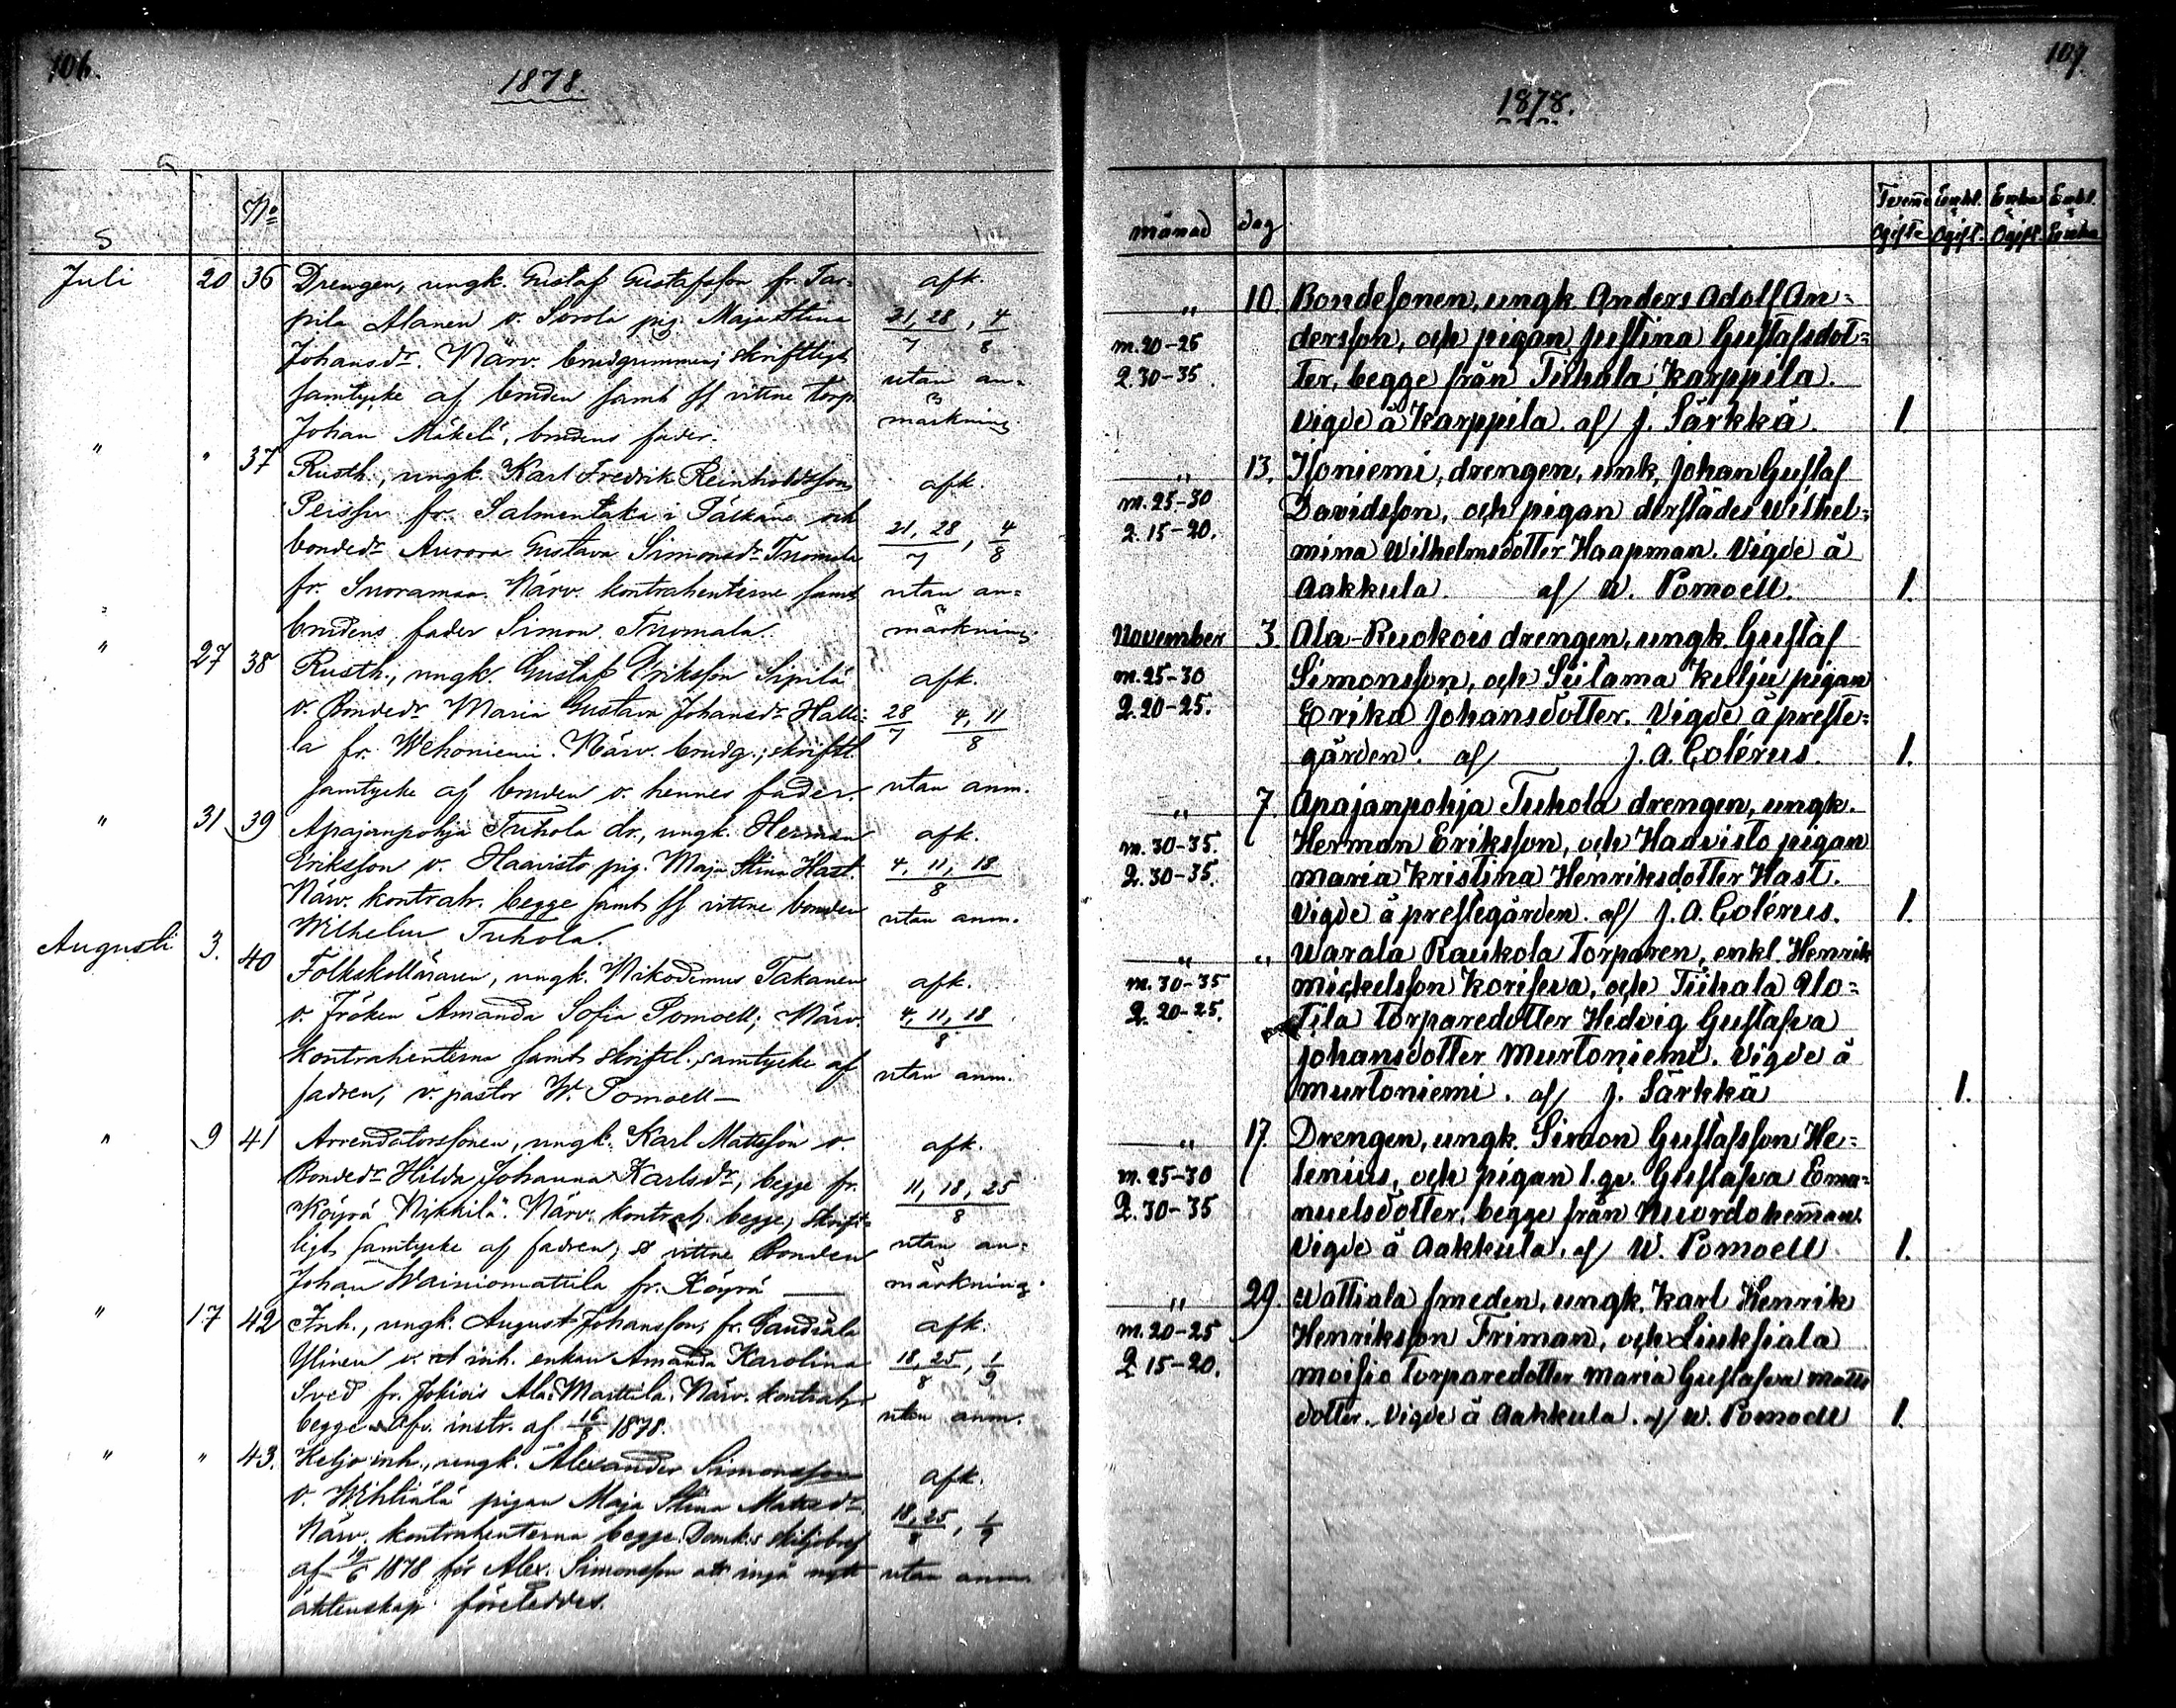 106.
1878.
No
Juli 20 36 Drengen, ungk. Gustaf Gustafsson fr. Tar- afk.
pila Alanen o. Sorola pig. Maja Stina 21, 28/7, 4/8
Johansdr. Närv. brudgummen; skriftligt
samtycke af bruden samt ss vittne torp. utan an-
Johan Mäkelä, brudens fader. märkning.
" " 37 Rusth., ungk. Karl Fredrik Reinholdsson afk.
fr. Salmentaka i Pälkäne och 21, 28/7, 4/8
bondedr. Aurora Gustava Simonsdr. Tuomala
fr. Suoramaa. Närv. kontrahenterne samt utan an-
brudens fader Simon Tuomala. märkning.
" 27 38 Rusth., ungk. Gustaf Eriksson Sipilä afk.
o. Bondedr. Maria Gustava Johansdr. Halli- 28/7 4, 11/8
la fr. Wehoniemi. Närv. brudg.; skriftl.
samtycke af bruden o. hennes fader. utan anm.
" 31 39 Apajanpohja Tuhola dr., ungk. Herman afk.
Eriksson o. Haavisto pig. Maja Stina Hast. 4, 11, 18/8
Närv. kontrah. begge samt ss vittne bonden utan anm.
Wilhelm Tuhola.
Augusti 3. 40 Folkskolläraren, ungk. Nikodemus Takanen afk.
o. Fröken Amanda Sofia Pomoell; Närv. 4, 11, 18/8
Kontrahenterna samt skriftl. samtycke af utan anm.
fadren, v. pastor W. Pomoell —
" 9 41 Arrendatorssonen, ungk. Karl Mattsson o. afk.
Bondedr. Hilda Johanna Karlsdr., begge fr. 11, 18, 25/8
Köyrä Nikkilä. Närv. kontrah. begge, skrift-
ligt samtycke af fadren, ss vittne Bonden utan an-
Johan Wainiomattila fr. Köyrä — märkning.
" 17 42 Inh., ungk. August Johansson, fr. afk.
Ylinen o. inh. enkan Amanda Karolina 18, 25/8, 1/9
Sved fr. Jokiois Ala-Marttila. Närv. kontrah.
begge. Afv. instr. af 16/8 1878. utan anm.
" " 43. Keljo inh., ungk. Alexander Simonsson afk.
o. pigan Maja Stina Mattsdr. 18, 25/8, 1/9
Närv. kontrahenterna begge. Domk:s skiljebref
af 19/6 1878 för Alex. Simonsson att ingå nytt utan anm.
äktenskap företeddes.
107.
1878.
månad dag Ogifte Enkl. Ogift. Enka Ogift. Enkl. Enka
" 10. Bondesonen, ungk. Anders Adolf An-
m. 20-25 dersson, och pigan Justina Gustafsdot-
Q. 30-35. ter, begge från Tiihala Karppila.
Vigde å Karppila. af J. Särkkä. 1.
" 13. Isoniemi, drengen, unk, Johan Gustaf
m. 25-30 Davidsson, och pigan derstädes Wilhel-
Q. 15-20. mina Wilhelmsdotter Haapman. Vigde å
Aakkula. af W. Pomoell. 1.
November 3. Ala-Ruokois drengen, ungk. Gustaf
m. 25-30 Simonsson, och Siitama Kilju pigan
Q. 20-25. Erika Johansdotter. Vigde å preste-
gården. af J. A. Colérus. 1.
" 7. Apajanpohja Tuhola drengen, ungk.
m. 30-35. Herman Eriksson, och Haavisto pigan
Q. 30-35. Maria Kristina Henriksdotter Hast.
Vigde å prestegården. af J. A. Colérus. 1.
" " Warala Raukola Torparen, enkl. Henrik
m. 30-35 Mickelsson Koriseva, och Tiihala Alo-
Q. 20-25. Tila Torparedotter Hedvig Gustafva
Johansdotter Murtoniemi. Vigde å
Murtoniemi. af J. Särkkä 1.
" 17. Drengen, ungk. Simon Gustafsson He-
m. 25-30 lenius, och pigan l.qv. Gustafva Ema-
Q. 30-35 nuelsdotter, begge från Nuordoheman.
Vigde å Aakkula. af W. Pomoell 1.
" 29. Wattiala smeden, ungk. Karl Henrik
m. 20-25 Henriksson Friman, och Liuksiala
Q 15-20. moisio Torparedotter Maria Gustafva Matts
dotter. Vigde å Aakkula. af W. Pomoell 1.